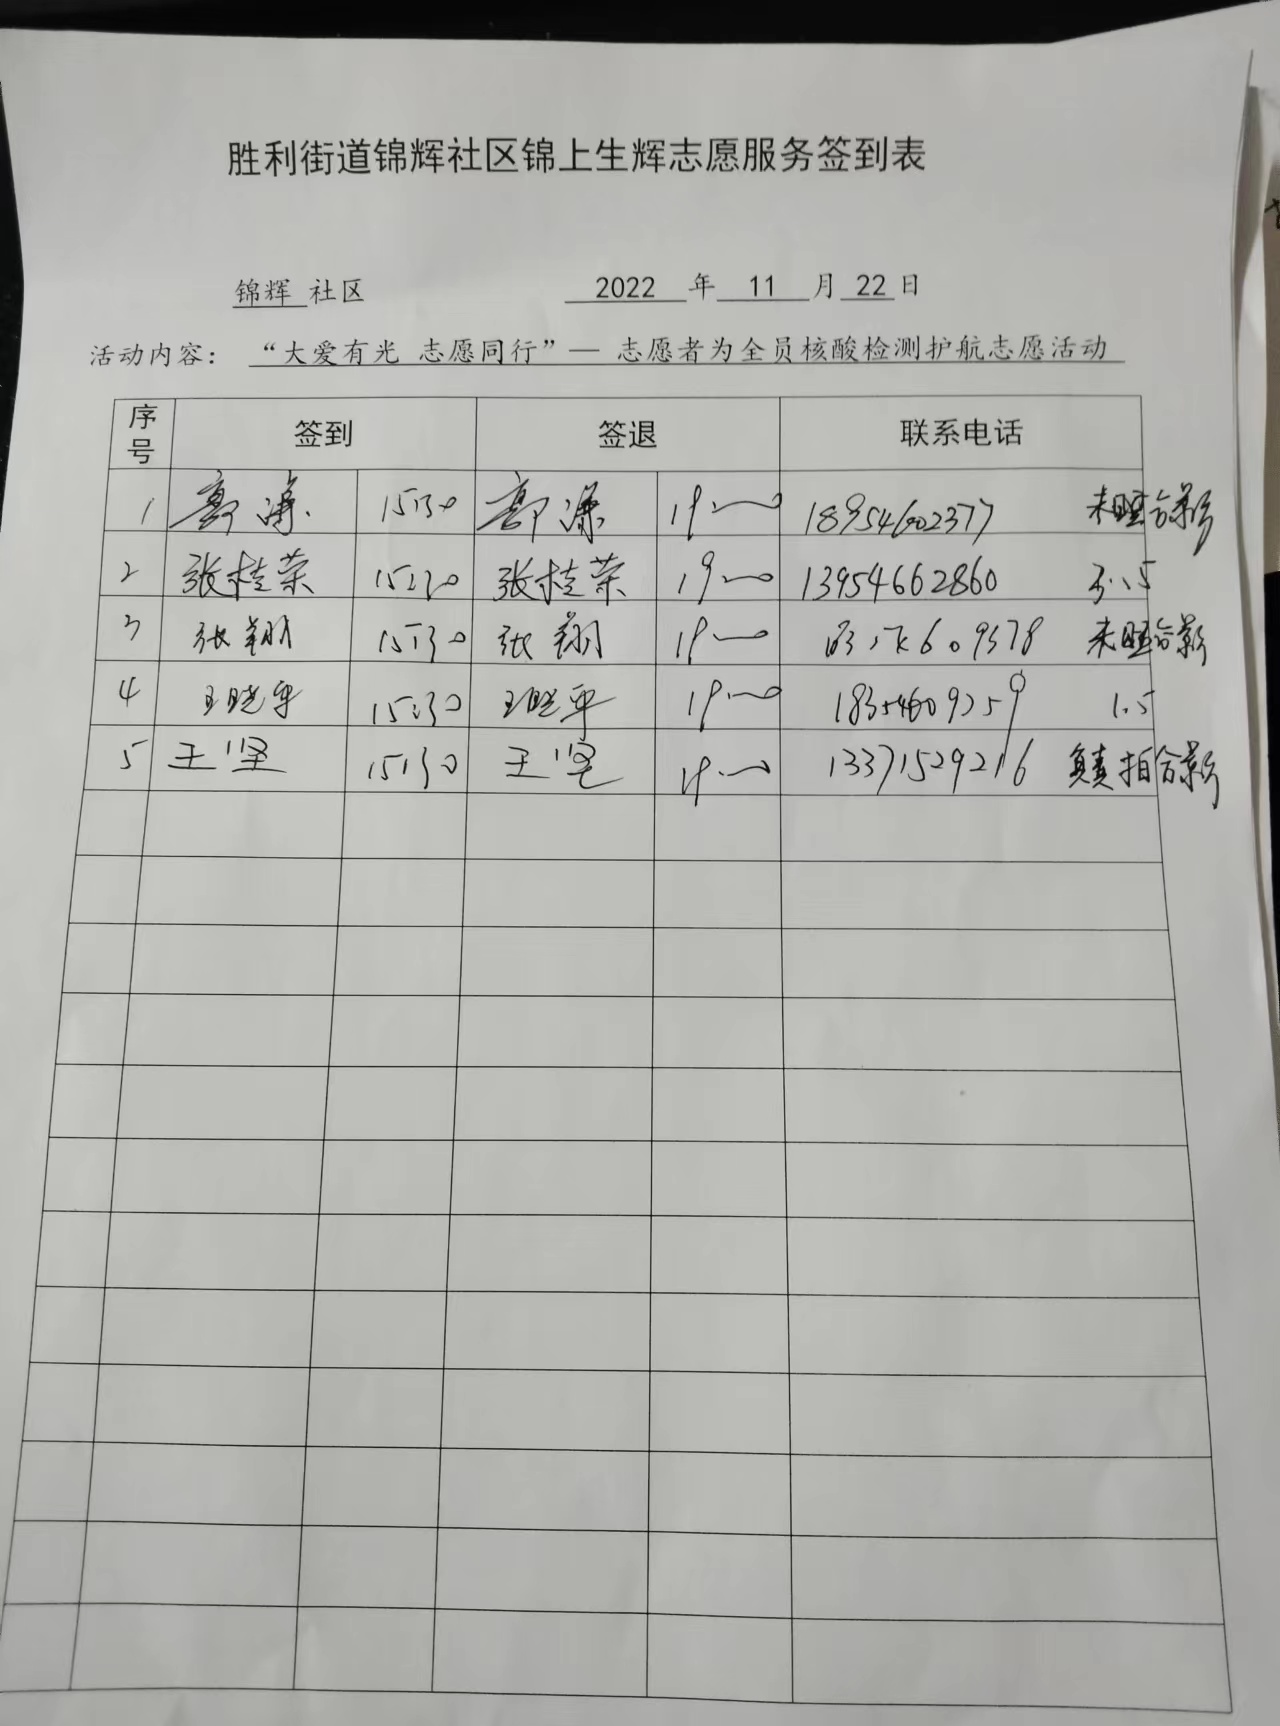 胜利街道锦辉社区锦上生辉志愿服务签到表
锦辉 社区 2022 年 11 月 22 日
活动内容： “大爱有光 志愿同行”— 志愿者为全员核酸检测护航志愿活动
序号 签到 签退 联系电话
1 15:30 19:00 18954602377 未照合影
2 张桂荣 15:30 张桂荣 19:00 13954662860
3 张翔 15:30 张翔 19:00 未照合影
4 王晓平 15:30 王晓平 19:00 18354609259 1.5
5 王坚 15:30 王坚 19:00 13371529216 负责拍合影